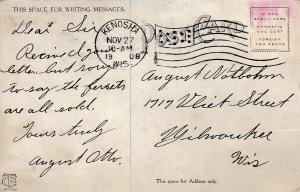 THIS SPACE FOR WRITING MESSAGES.
Dear Sir
Received your
letter but sorry
to say the ferrets
are all sold.
Yours truly
August Otto.
KENOSHA
NOV 27
10-AM
1908
WIS.
CARD
PLACE
STAMP HERE
DOMESTIC
ONE CENT
FOREIGN
TWO CENTS
August Nothbohm
1717 Vliet Street
Milwaukee
Wis
This space for Address only.